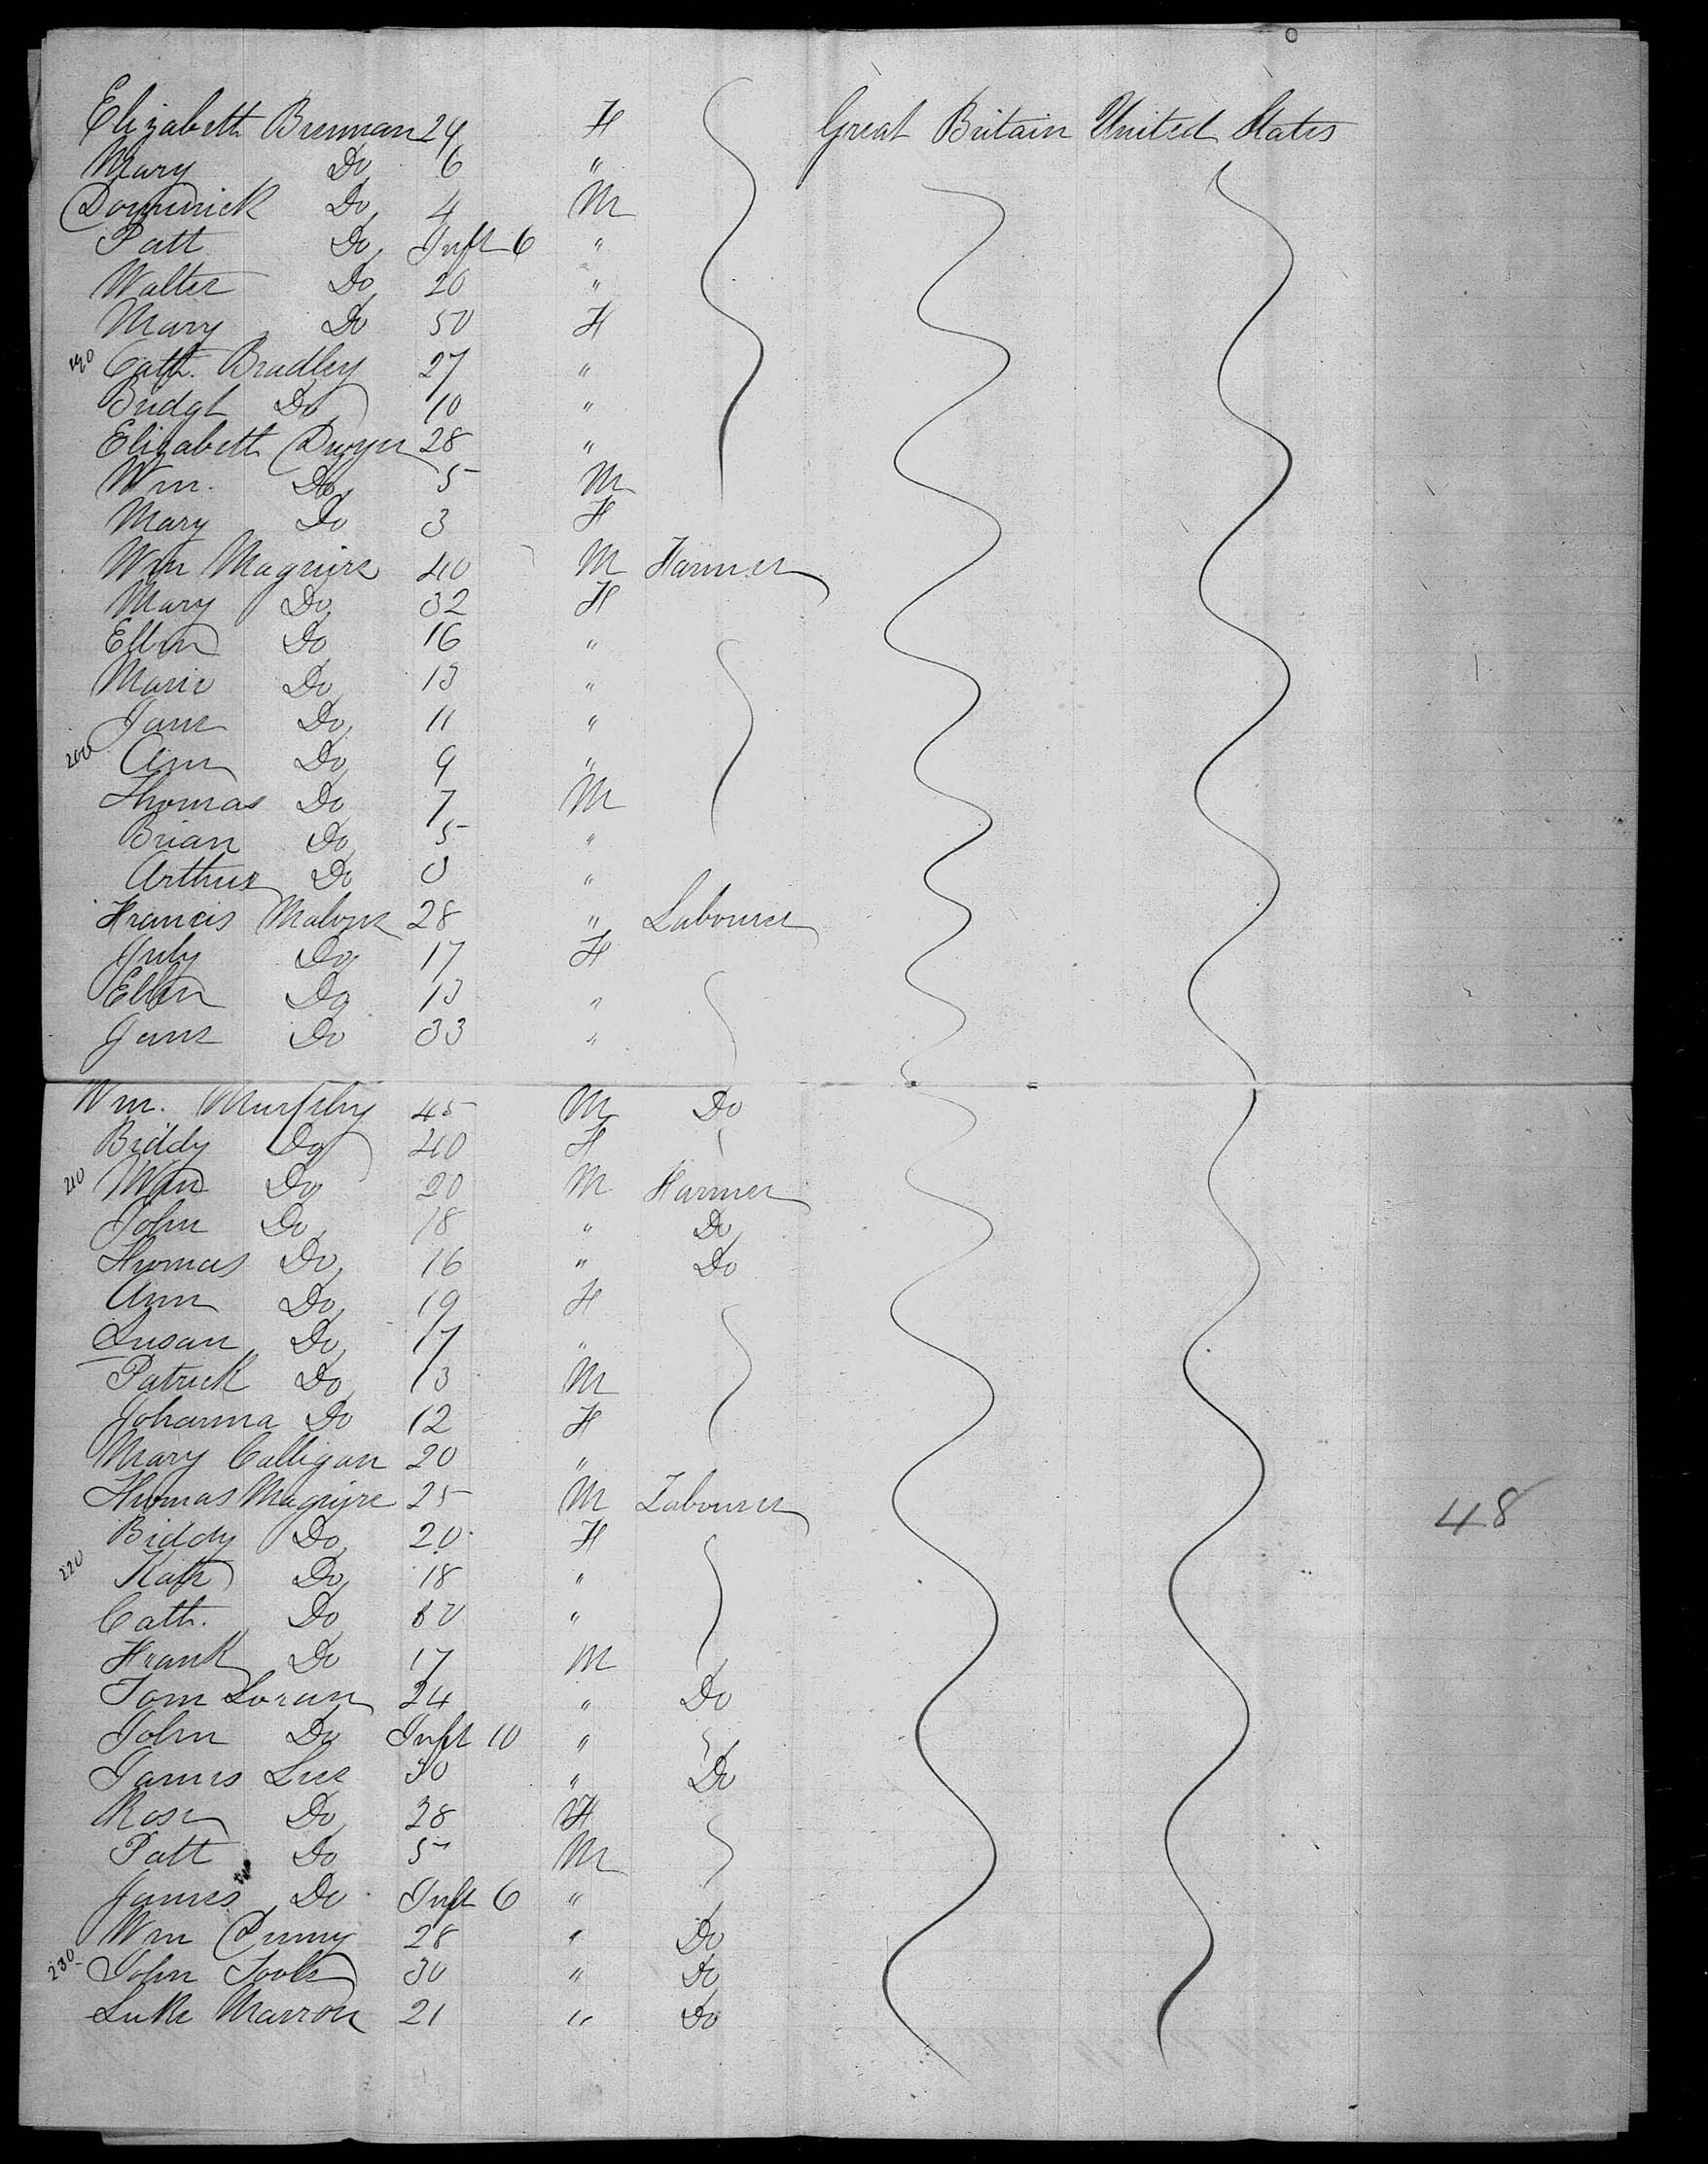 Elizabeth Brennan 24 F Great Britain United States
Mary Do 6 "
Dominick Do 4 M
Patt Do Inft 6 "
Walter Do 20 "
Mary Do 50 F
190 Cath. Bradley 27 "
Bridgt Do 10 "
Elizabeth Dwyer 28 "
Wm. Do 5 M
Mary Do 3 F
Wm Maguire 40 M Farmer
Mary Do 32 F
Ellen Do 16 "
Maria Do 13 "
Jane Do 11 "
200 Ann Do 9 "
Thomas Do 7 M
Brian Do 5 "
Arthur Do 3 "
Francis Malone 28 " Labourer
July Do 17 F
Ellen Do 13 "
Jane Do 33 "
Wm. Murphy 45 M Do
Biddy Do 40 F
210 Wm Do 20 M Farmer
John Do 18 " Do
Thomas Do 16 " Do
Ann Do 19 F
Susan Do 17 "
Patrick Do 13 M
Johanna Do 12 F
Mary Calligan 20 "
Thomas Maguire 25 M Labourer
Biddy Do 20 F
220 Kate Do 18 "
Cath. Do 60 "
Frank Do 17 M
Tom Loran 24 " Do
John Do Inft 10 "
James Lee 30 " Do
Rose Do 28 F
Patt Do 5 M
James Do Inft 6 "
Wm Denny 28 " Do
230 John Toole 30 " Do
Luke Marron 21 " Do
48